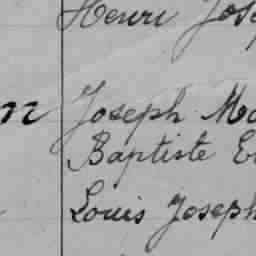 Henri Jose
n Joseph Ma
Baptiste E
Louis Joseph